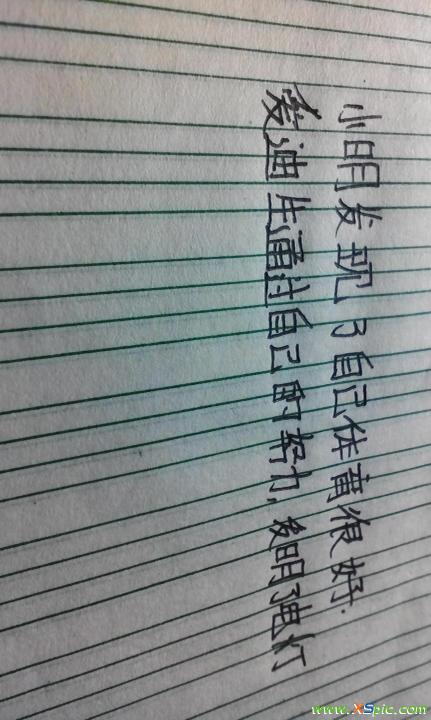 小明发现了自己体育很好.
爱迪生通过自己的努力,发明了电灯
www.XSpic.com